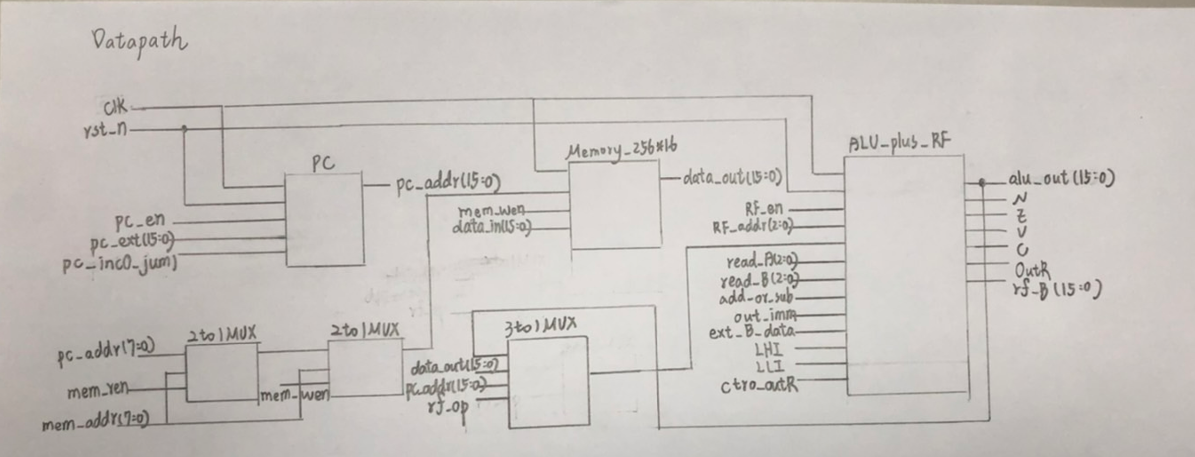 Datapath
clk
rst_n
PC
pc_en
pc_ext(15:0)
pc_inc0_jum1
pc_addr(15:0)
Memory_256*16
mem_wen
data_in(15:0)
data_out(15:0)
ALU_plus_RF
RF_en
RF_addr(2:0)
read_A(2:0)
read_B(2:0)
add_or_sub
out_imm
ext_B_data
LHI
LLI
ctro_outR
alu_out(15:0)
N
Z
V
C
OutR
rf_B(15:0)
2to1MUX
pc_addr(7:0)
mem_ren
mem_addr(7:0)
2to1MUX
mem_wen
3to1MUX
data_out(15:0)
pc_addr(15:0)
rf_op